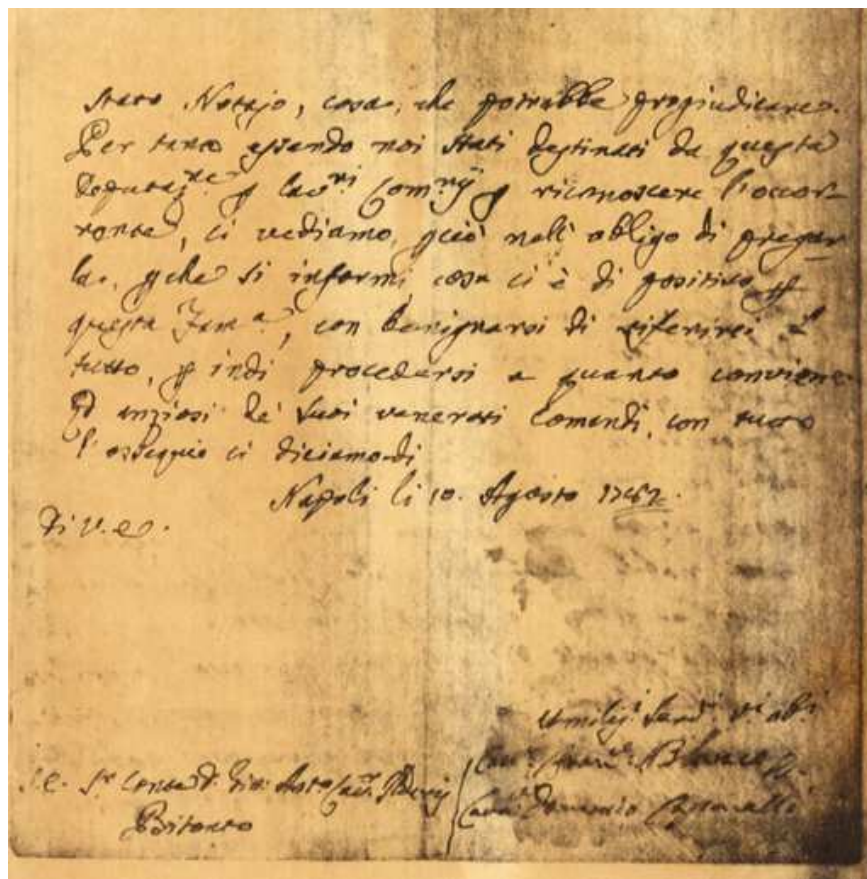 stato Notajo, cosa, che potrebbe progiudicare.
Per tanto essendo noi stati destinati da questa
Deputaz.ne p Cav.ri Com.rij p riconoscere l'occor-
rente, ci vediamo, pciò nell' obligo di pregar-
la, pche si informi cosa ci è di positivo p
questa Fam.a, con benignarsi di riferirci il
tutto, p indi procedersi a quanto conviene
Ed anziosi de' suoi venerati Comandi, con tutto
l'ossequio ci diciamo di
Napoli li 10. Agosto
Di V.E.
Umiliss.i Serv.i
S.E. Sr Conte D. Gio: Ant.o Cav.
Bitonto